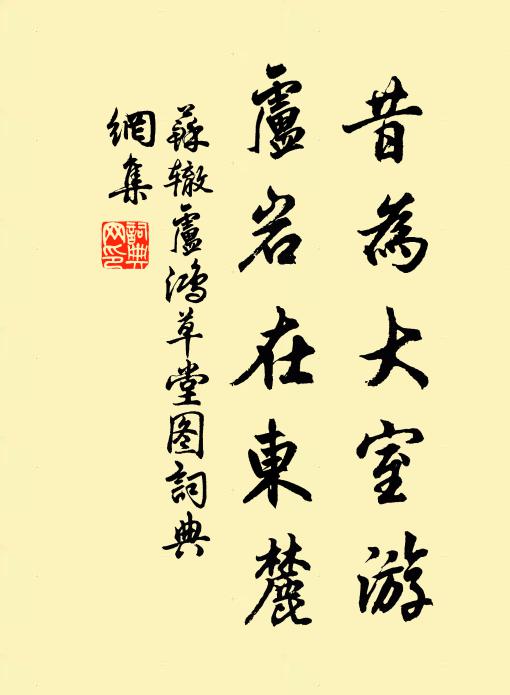 昔為大室游
盧岩在東麓
蘇辙盧鴻草堂图詞典
網集
詞典
网印